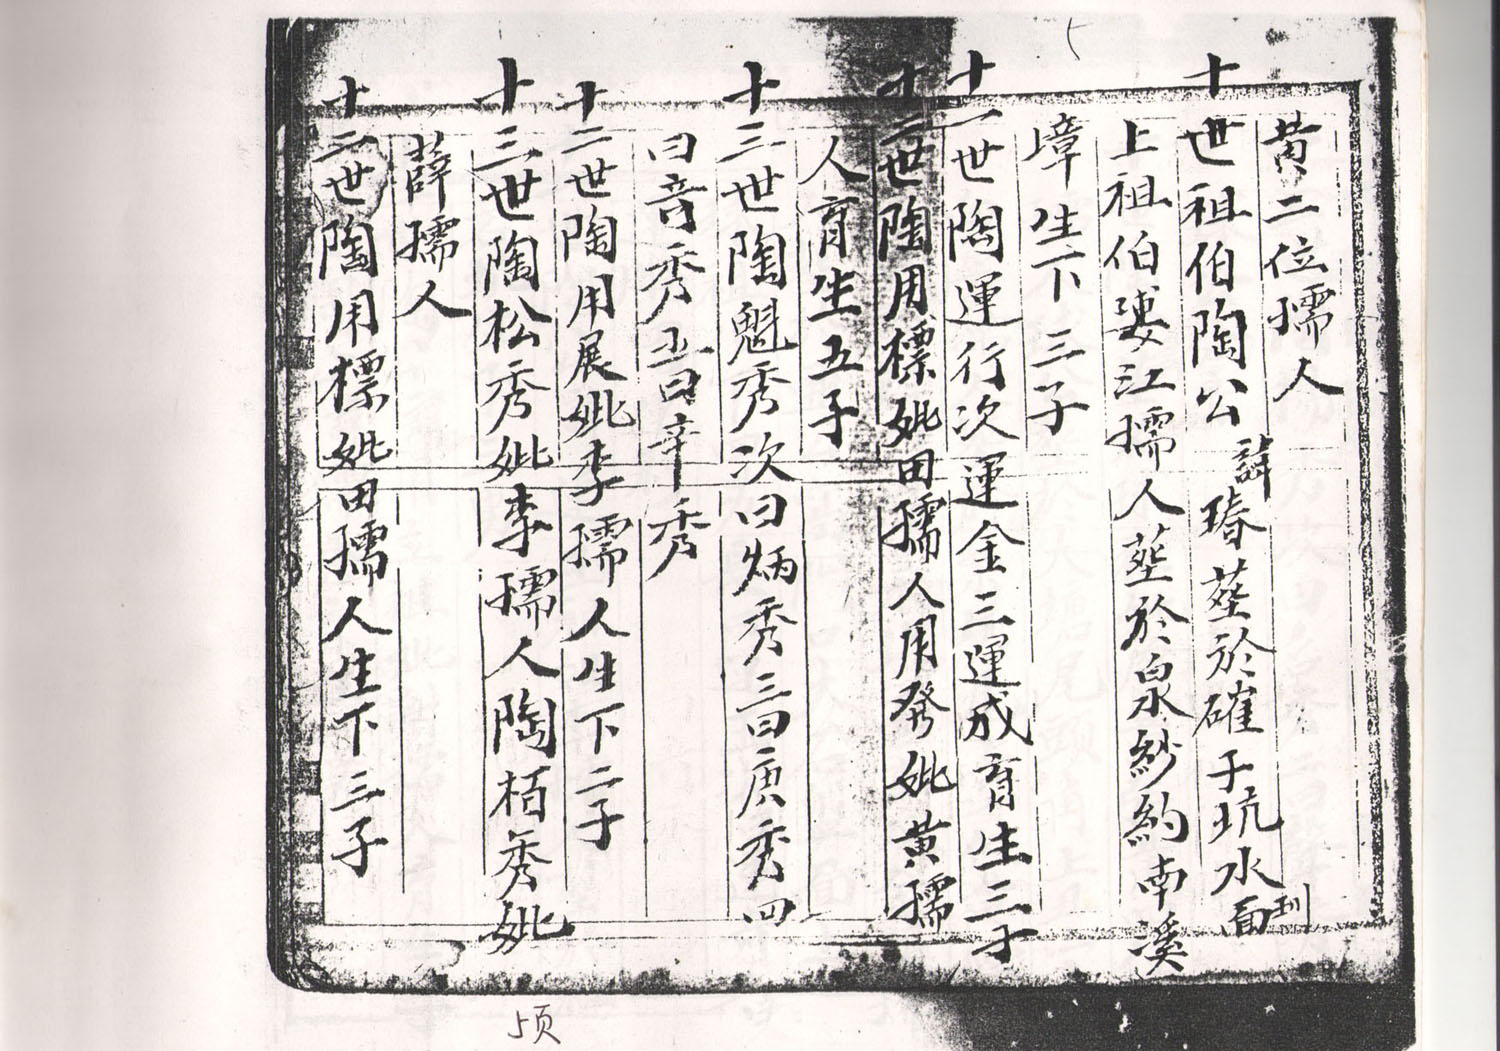 黄二位孺人
十世祖伯陶公諱瑃塟於確子坑水面圳
上祖伯婆江孺人塟於泉紗約南溪
墇生下三子
十一世陶運行次運金三運成育生三子
十二世陶用標妣田孺人用發妣黄孺
人育生五子
十三世陶魁秀次曰炳秀三曰庚秀四
曰音秀五曰辛秀
十二世陶用展妣李孺人生下二子
十三世陶松秀妣李孺人陶栢秀妣
薛孺人
十二世陶用標妣田孺人生下三子
5页